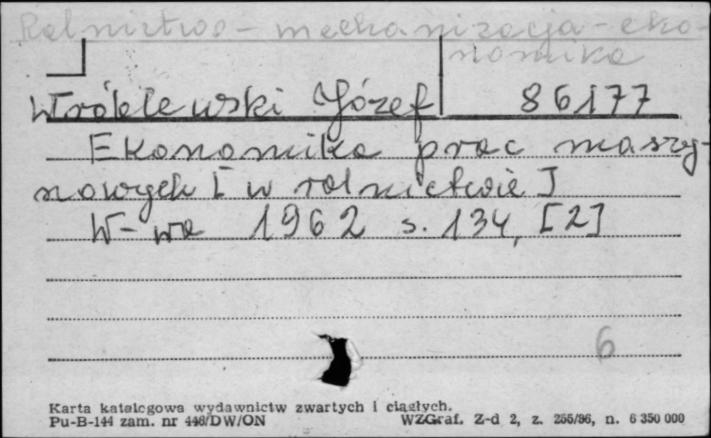 Rolnictwo - mechanizacja - eko-
nomika
Wróblewski Józef 86177
Ekonomika prac maszy-
nowych [ w rolnictwie ]
W-wa 1962 s. 134, [2]
6
Karta katalogowa wydawnictw zwartych i ciągłych.
Pu-B-144 zam. nr 446/DW/ON WZGraf. Z-d 2, z. 255/86, n. 6 350 000